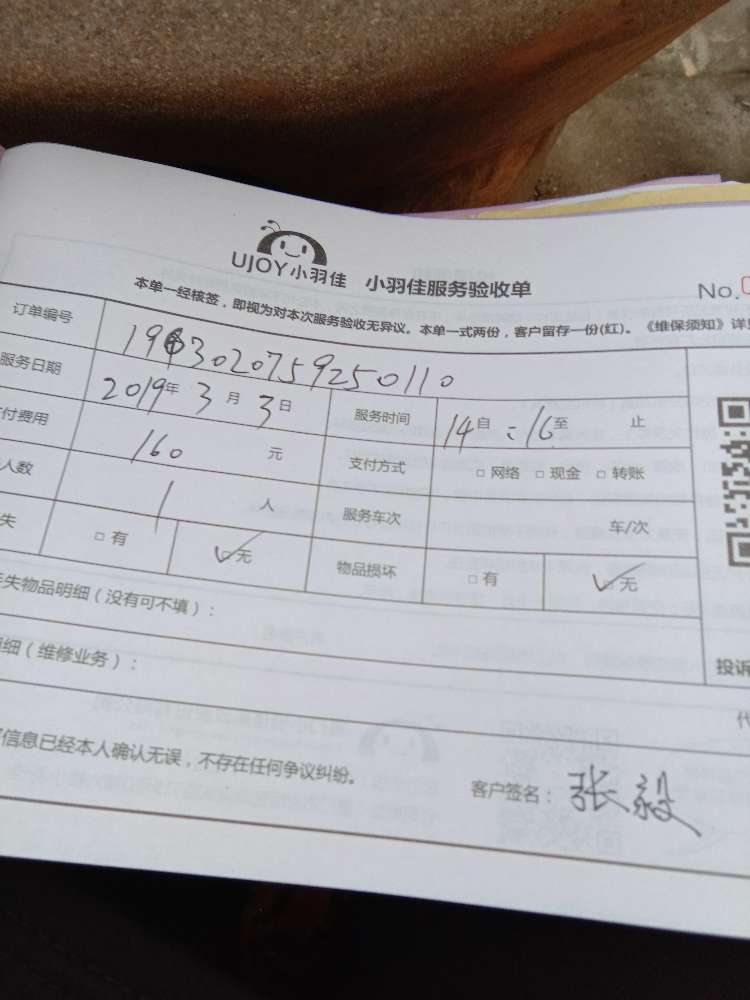 UJOY小羽佳 小羽佳服务验收单
No.
本单一经核签，即视为对本次服务验收无异议。本单一式两份，客户留存一份(红)。《维保须知》详
订单编号
服务日期 2019年3月3日 服务时间 14自:16至 止
付费用 160 元 支付方式 □网络 □现金 □转账
人数 1 人 服务车次 车/次
失 □有 □无 物品损坏 □有 □无
失物品明细(没有可不填)：
细(维修业务)： 投诉
代
信息已经本人确认无误，不存在任何争议纠纷。
客户签名：张毅